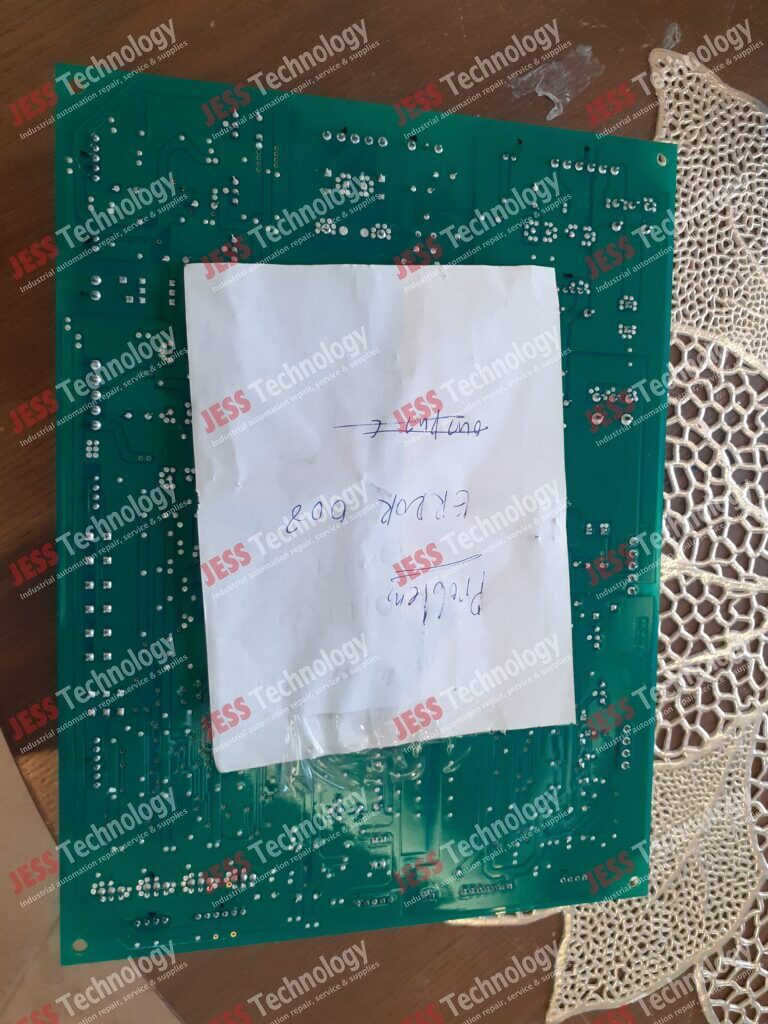 Problem
ERROR 008
output
JESS Technology
Industrial automation repair, service & supplies